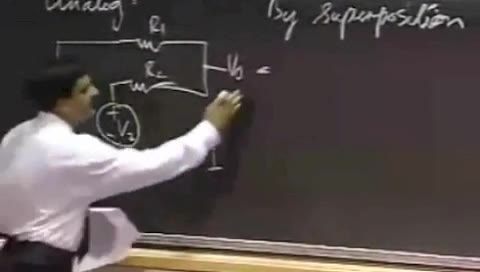 Analog:
By Superposition
R1
R2
V0
+
- V2